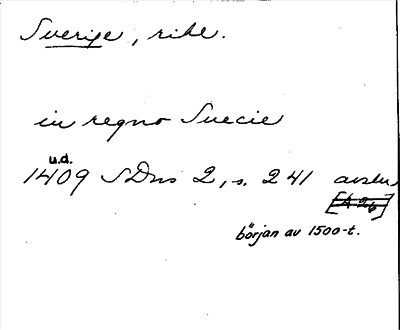 Sverige, rike.
in regno Suecie
u.d.
1409 SDns 2, s. 241 avskr.
[A 26]
början av 1500-t.